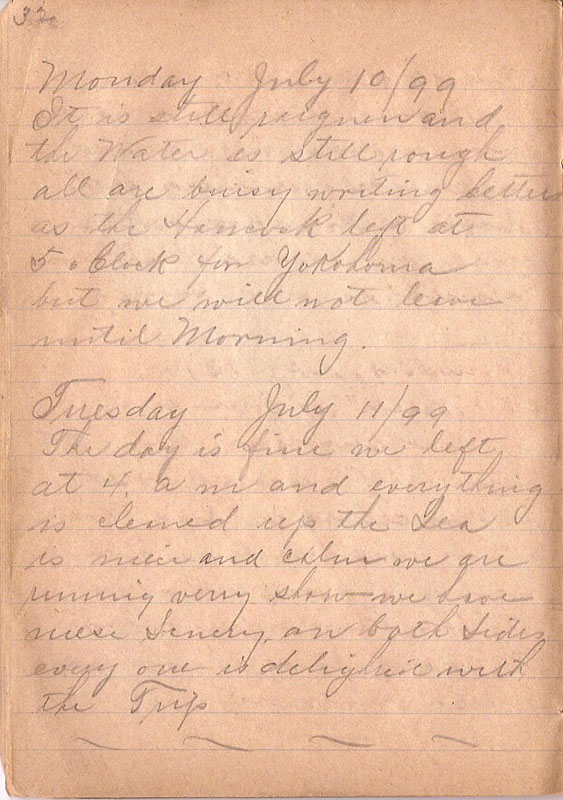 32
Monday July 10/99
It is still raignen and
the Water is still rough
all are buisy writing letters
as the Hancock left at
5 o Clock for Yokohoma
but we will not leave
until Morning.
Tuesday July 11/99
The day is fine we left
at 4. a m and everything
is cleaned up the Sea
is niece and calm we are
running verry slow we have
niese Senery on both Sides
every one is delighted with
the Trip